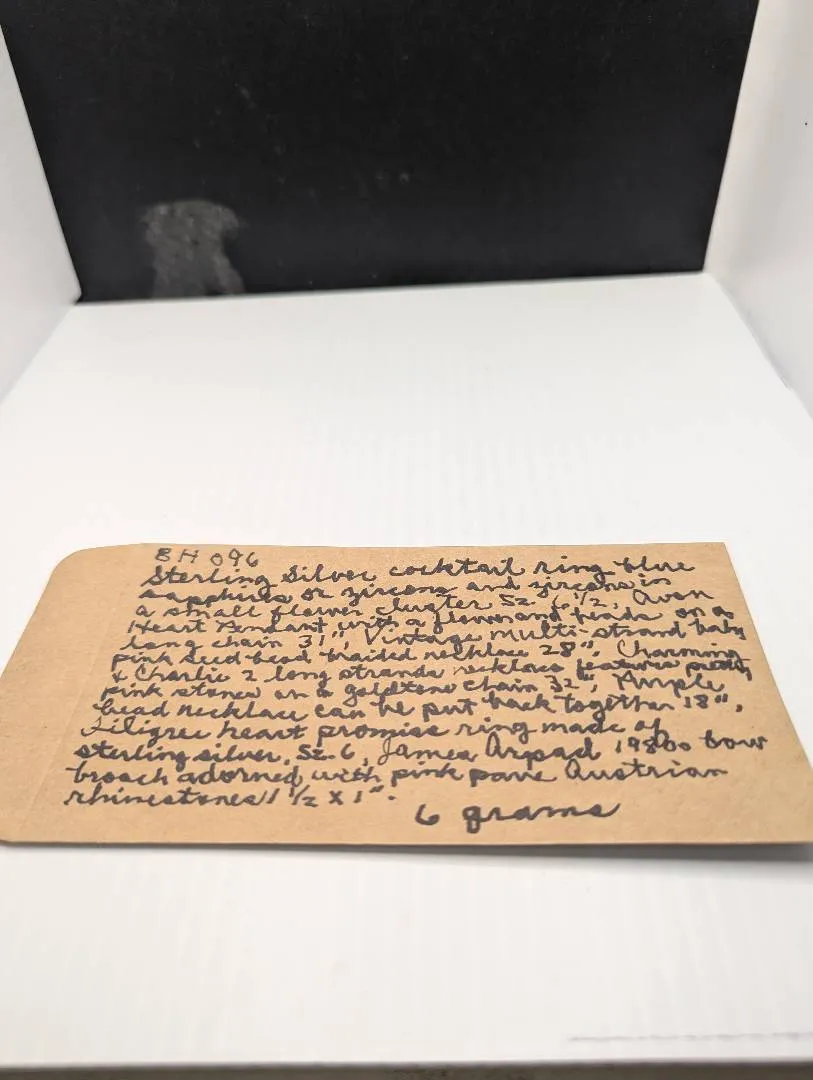 BH 096
Sterling Silver cocktail ring blue
sapphires or zircons and zircons in
a small flower cluster Sz 6 1/2, Avon
Heart Pendant with a flower and beads on a
long chain 31", Vintage multi-strand baby
pink seed bead braided necklace 28", Charming
& Charlie 2 long strands necklaces features pretty
pink stones on a goldtone chain 32", Purple
bead necklace can be put back together 18",
Filigree heart promise ring made of
sterling silver, Sz. 6, James Arpad 1980s bow
brooch adorned with pink pave Austrian
rhinestones 1 1/2 x 1".
6 grams